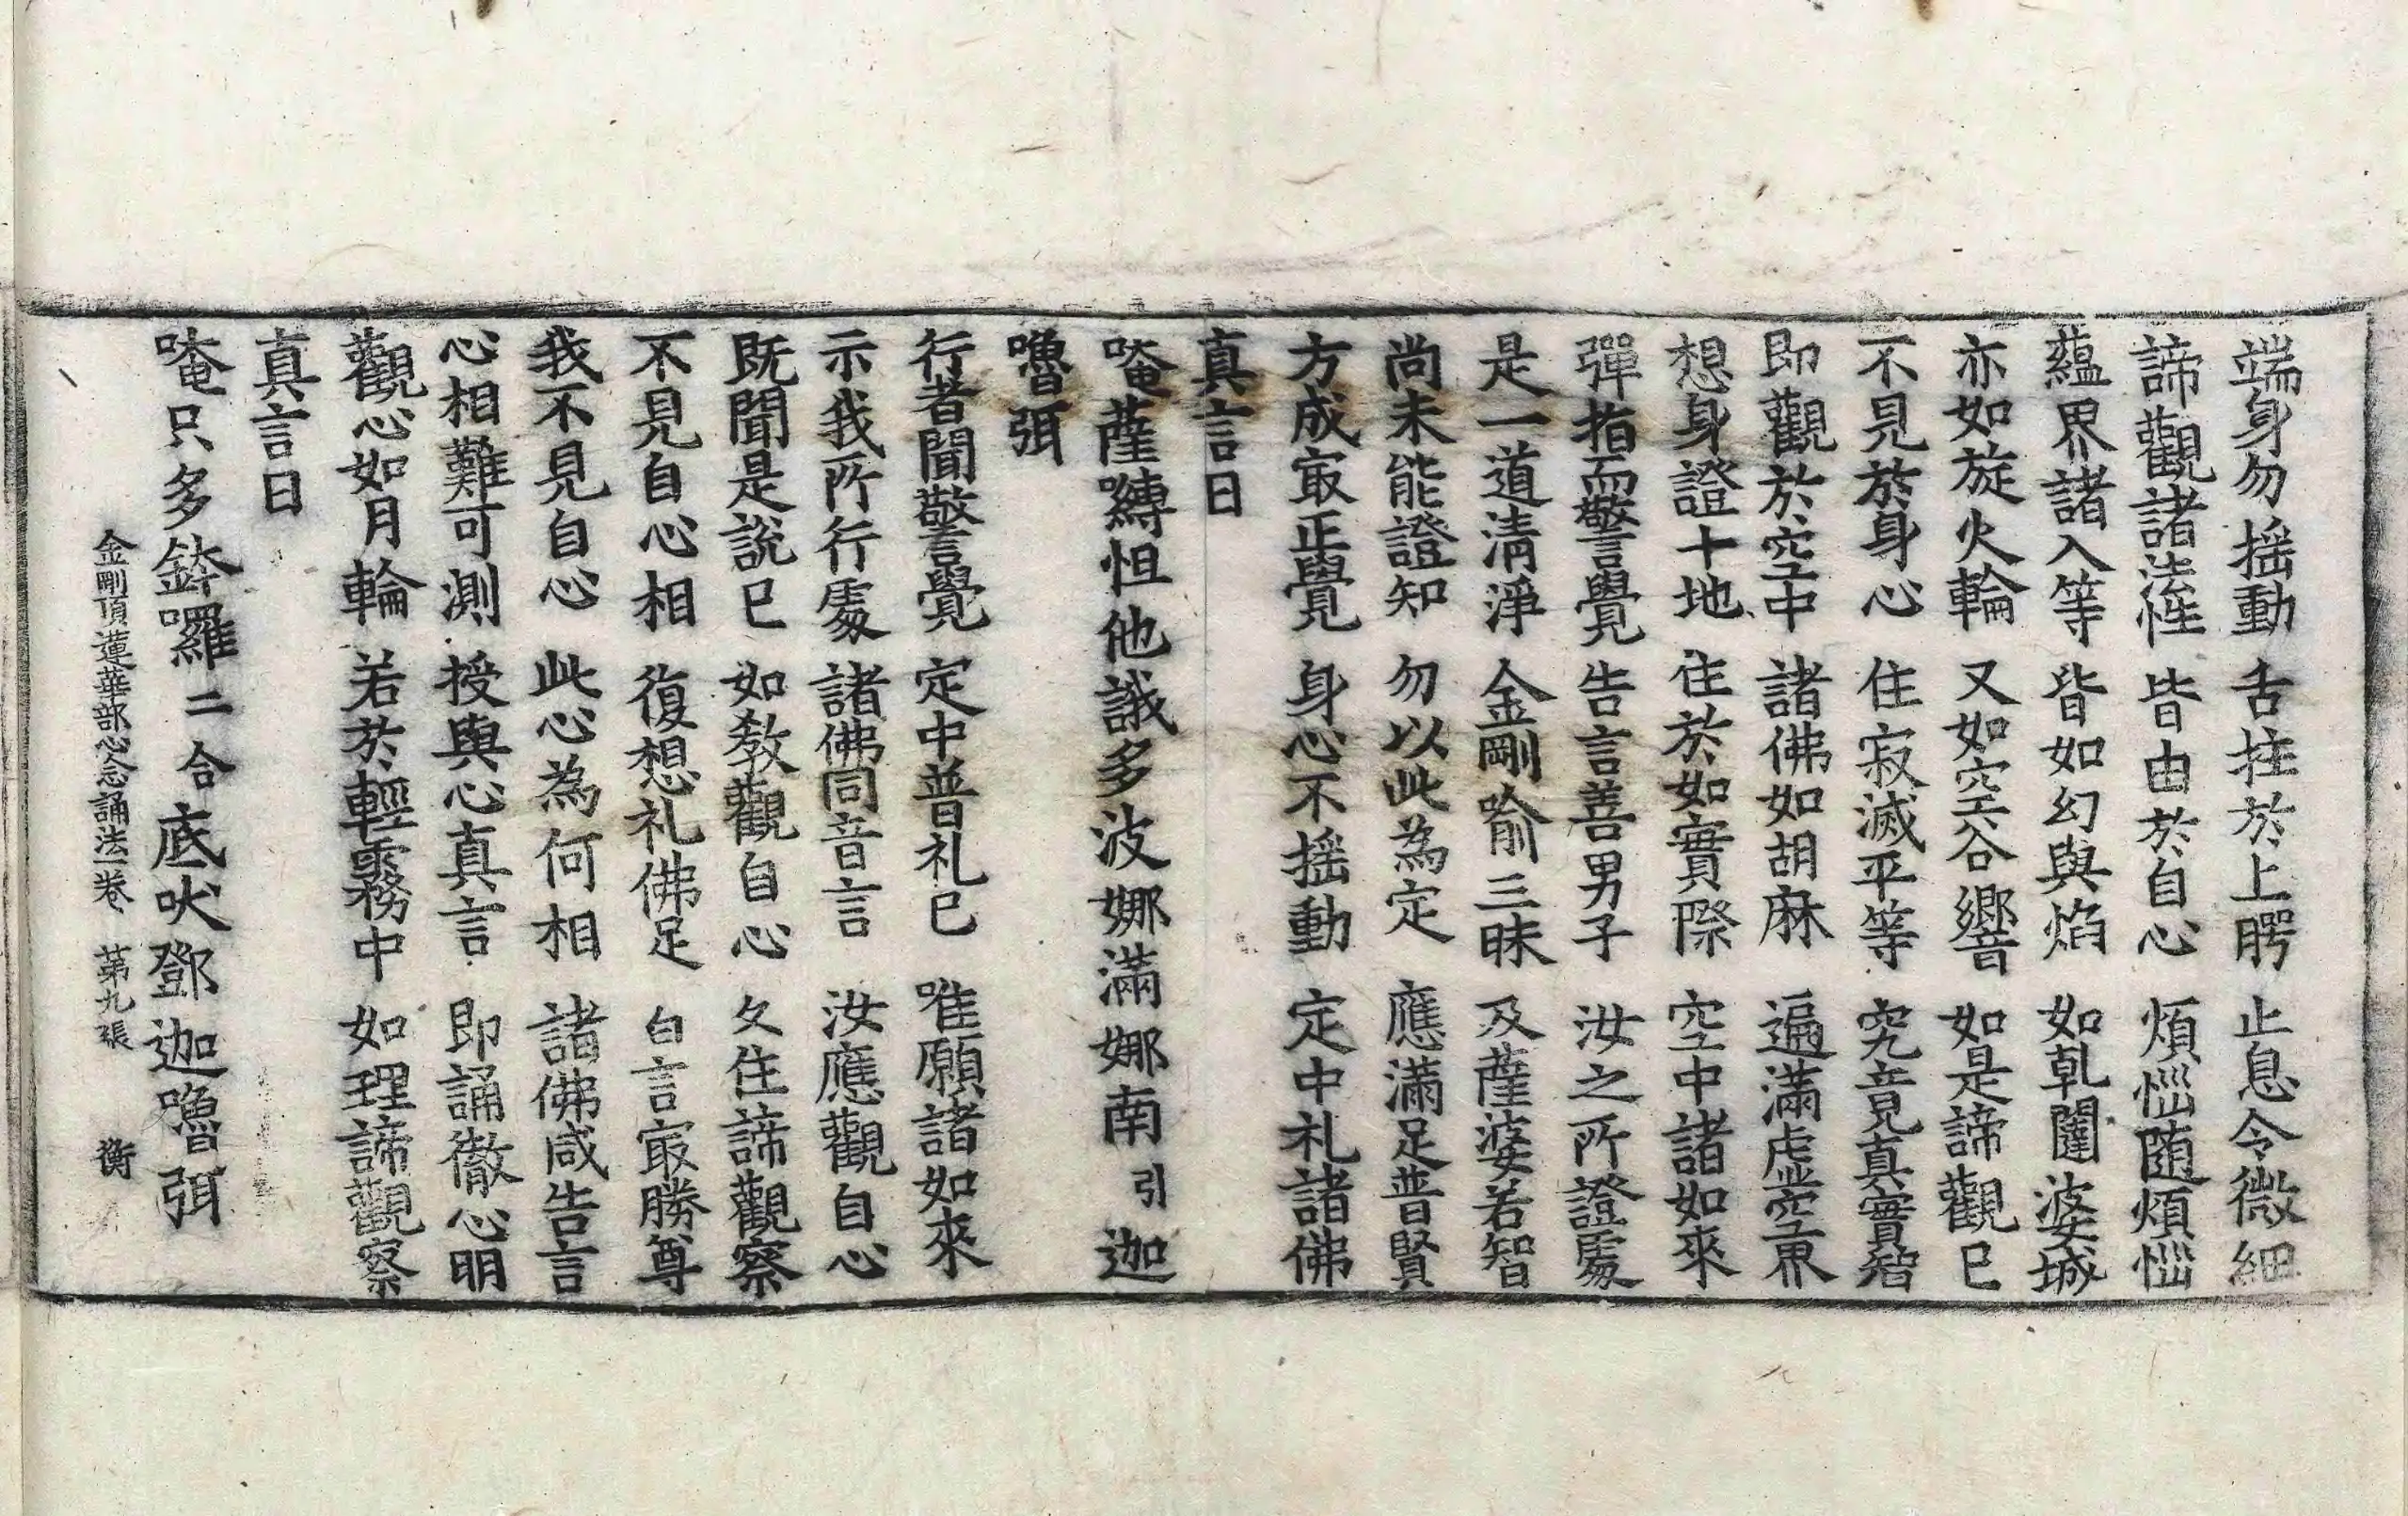 端身勿揺動 舌拄於上腭 止息令微細
諦觀諸法性 皆由於自心 煩惱随煩惱
蘊界諸入等 皆如幻與焰 如乹闥婆城
亦如旋火輪 又如空谷響 如是諦觀已
不見於身心 住寂滅平等 究竟真實智
即觀於空中 諸佛如胡麻 遍滿虛空界
想身證十地 住於如實際 空中諸如來
彈指而警覺 告言善男子 汝之所證處
是一道清淨 金剛喻三昧 及薩婆若智
尚未能證知 勿以此為定 應滿足普賢
方成冣正覺 身心不揺動 定中礼諸佛
真言曰
唵薩嚩怛他誐多波娜滿娜南引迦
嚕弭
行者聞警覺 定中普礼已 唯願諸如來
示我所行處 諸佛同音言 汝應觀自心
既聞是說已 如教觀自心 久住諦觀察
不見自心相 復想礼佛足 白言冣勝尊
我不見自心 此心為何相 諸佛咸告言
心相難可測 授與心真言 即誦徹心明
觀心如月輪 若於輕霧中 如理諦觀察
真言曰
唵只多鉢囉二合底吠鄧迦嚕弭
金剛頂蓮華部心念誦法一卷 第九張 衡